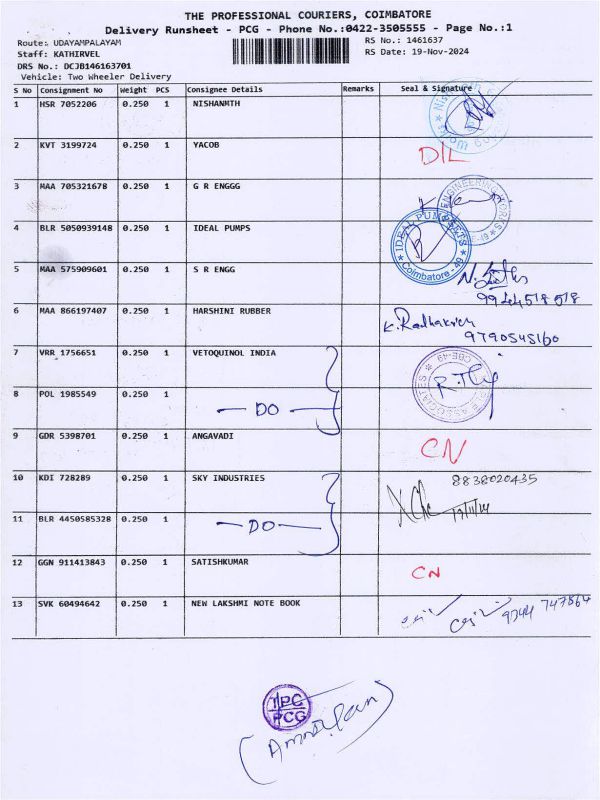 THE PROFESSIONAL COURIERS, COIMBATORE
Delivery Runsheet - PCG - Phone No.:0422-3505555 - Page No.:1
Route: UDAYAMPALAYAM RS No.: 1461637
Staff: KATHIRVEL RS Date: 19-Nov-2024
DRS No.: DCJB146163701
Vehicle: Two Wheeler Delivery
S No Consignment No Weight PCS Consignee Details Remarks Seal & Signature
1 HSR 7052206 0.250 1 NISHANMTH
2 KVT 3199724 0.250 1 YACOB D/L
3 MAA 705321678 0.250 1 G R ENGGG ENGINEERING WORKS
4 BLR 5050939148 0.250 1 IDEAL PUMPS IDEAL PUMPSETS Coimbatore - 49
5 MAA 575909601 0.250 1 S R ENGG
9944518518
6 MAA 866197407 0.250 1 HARSHINI RUBBER K. Radhakrish
9790545160
7 VRR 1756651 0.250 1 VETOQUINOL INDIA
8 POL 1985549 0.250 1 DO ASSOCIATES CBE-49
9 GDR 5398701 0.250 1 ANGAVADI CN
10 KDI 728289 0.250 1 SKY INDUSTRIES 8838020435
11 BLR 4450585328 0.250 1 DO
12 GGN 911413843 0.250 1 SATISHKUMAR CN
13 SVK 60494642 0.250 1 NEW LAKSHMI NOTE BOOK 9744 747864
TPC
PCG